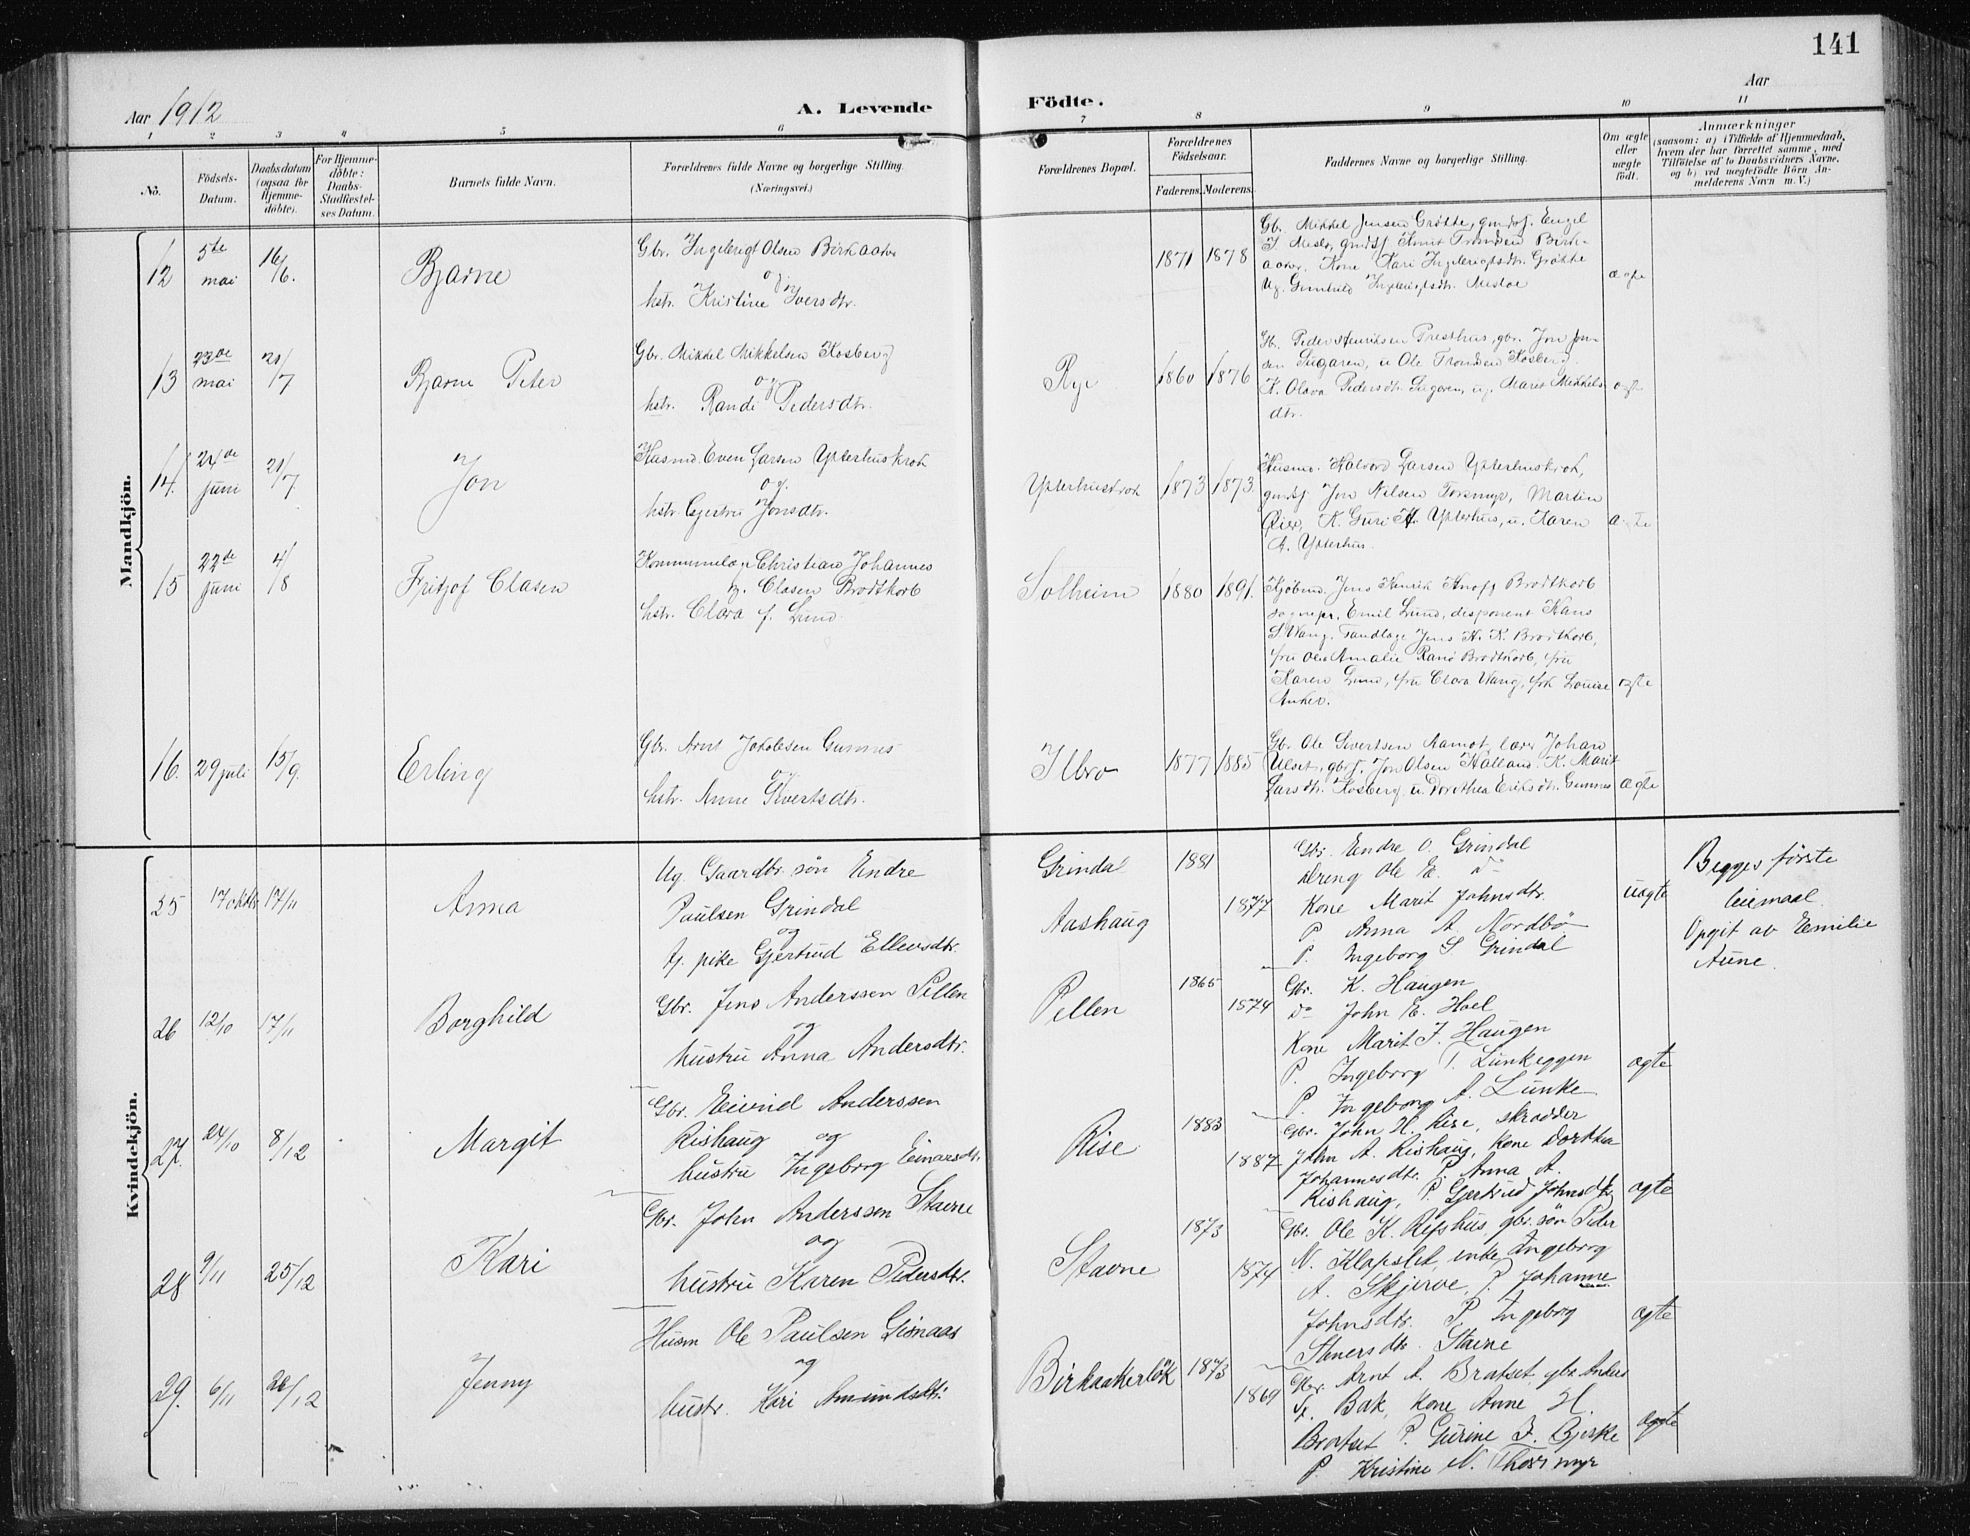 141
Aar 1912
A. Levende Födte.
Aar
1 2 3 4 5 6 7 8 9 10 11
Nô.
Födsels-Datum.
Daabsdatum (ogsaa for Hjemme-döbte).
For Hjemme-döbte: Daabs-Stadfæstelses Datum.
Barnets fulde Navn.
Forældrenes fulde Navne og borgerlige Stilling. (Næringsvei.)
Forældrenes Bopæl.
Forældrenes Födselsaar.
Faderens. Moderens.
Faddernes Navne og borgerlige Stilling.
Om ægte eller uægte födt.
Anmærkninger
(saasom: a) i Tilfælde af Hjemmedaab, hvem der har forrettet samme, med Tilföielse af to Daabsvidners Navne, og b) ved uægtefödte Börn Anmelderens Navn m. V.)
Mandkjön.
12
5te mai
16/6.
Bjarne
Gbr. Ingebrigt Olsen Birkaaker
og
hstr. Kristine Iversdtr.
1871 1878
Gb. Mikkel Jensen Grötte, gmdsf. Engel
I Mesloe, gmdsf Arnt Tronsen Birk-
aaker, Kone Kari Ingebrigtsdtr. Grötte
Ug. Gunhild Ingebrigtsdtr. Mesloe
ægte
13
23de mai
21/7
Bjarne Peter
Gbr. Mikkel Mikkelsen Hosberg
og
hstr. Randi Pedersdtr.
Rye
1860 1876
Gb. Peder Henriksen Presthus, gbr. Jon Jon-
sen Sugaren, u Ole Tronsen Hosberg,
K. Olava Pedersdtr. Sugaren, u. Maret Mikkels-
dtr.
ægte
14.
24de juni
21/7
Jon
Husmd. Even Larsen Ypterhuskrok
og.
hstr. Gjertru Jonsdtr.
Ypterhuskrok
1873 1873.
Husmo. Halvord Larsen Ypterhuskrok,
gmdsf. Jon Nilsen Torsmyr, Martin
Öier, K. Guri H. Ypterhus, u. Karen
A. Ypterhus.
ægte
15
22de juni
4/8
Fritjof Clasen
Kommunelæ. Christian Johannes
Clasen Brodtkorb
hstr. Clara f. Lund.
Solheim
1880 1891.
Kjöbmd. Jens Henrik Knoff Brodtkorb
sognepr. Emil Lund, disponent Hans
S Wang, Tandlæge Jens H. K. Brodtkorb,
fru Amalie Brodtkorb, fru
Karen Lund, fru Clara Wang, frk Louise
Anker.
ægte
16.
29 juli
15/9.
Erling
Gbr. Arnt Jakobsen Gunnes
og
hstr. Anne Sivertsdtr.
Ilbro
1877 1885
Gb. Ole Sivertsen Aamot, lærer Johan
Ulset, gbrf. Jon Olsen Halland. K. Marit
Larsdtr. Hosberg u Dorothea Eriksdtr. Gunnes
Ægte
Kvindekjön.
25
17 oktbr
17/11
Anna
Ug. Gaardbr. sön Endre
Paulsen Grindal
og
pike Gjertrud Ellevsdtr.
Grindal
Aashaug
1881
1877
Gbr. Endre O. Grindal
Dreng Ole E. do
Kone Marit Johnsdtr.
P. Anna A. Nordbö
P. Ingeborg S Grindal
uægte
Begges förste
leiemaal.
Opgit av Emilie
Aune.
26
12/10
17/11
Borghild
Gbr. Jens Anderssen Pellen
og
hustru Anna Andersdtr.
Pellen
1865
1874
Gbr. K. Haugen
do John E. Hoel
Kone Marit J. Haugen
P. Ingeborg T. Lunkeggen
P. Ingeborg A. Lunke
ægte
27.
24/10
8/12
Margit
Gbr. Eivind Anderssen
Rishaug og
hustru Ingeborg Einarsdtr.
Rise
1883
1887
Gbr. John H. Rise, skrædder
John A. Rishaug, Kone Dorthea
Johannesdtr. P. Anna A.
Rishaug, P. Gjertrud Johnsdtr
ægte
28
9/11
25/12
Kari
Gbr. John Anderssen Stavne
og
hustru Karen Pedersdtr.
Stavne
1873
1874
Gbr. Ole K. Refshus gbr. sön Peder
N. Klapslet, enke Ingeborg
A. Skjerve, P. Johanne
Johnsdtr. P. Ingeborg
Stavne
ægte
29.
6/11
26/12
Jenny
Husm Ole Paulsen Gisnaas
og
hustr. Kari Amundsdtr.
Birkaakerlök
1873
1869
Gbr. Arnt A. Bratset, gbr Anders
Bak, Kone Anne H.
Bratset P. Gurine J. Bjerke
P. Kristine N. Thorsmyr
ægte